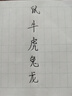 鼠
牛
虎
兔
龙